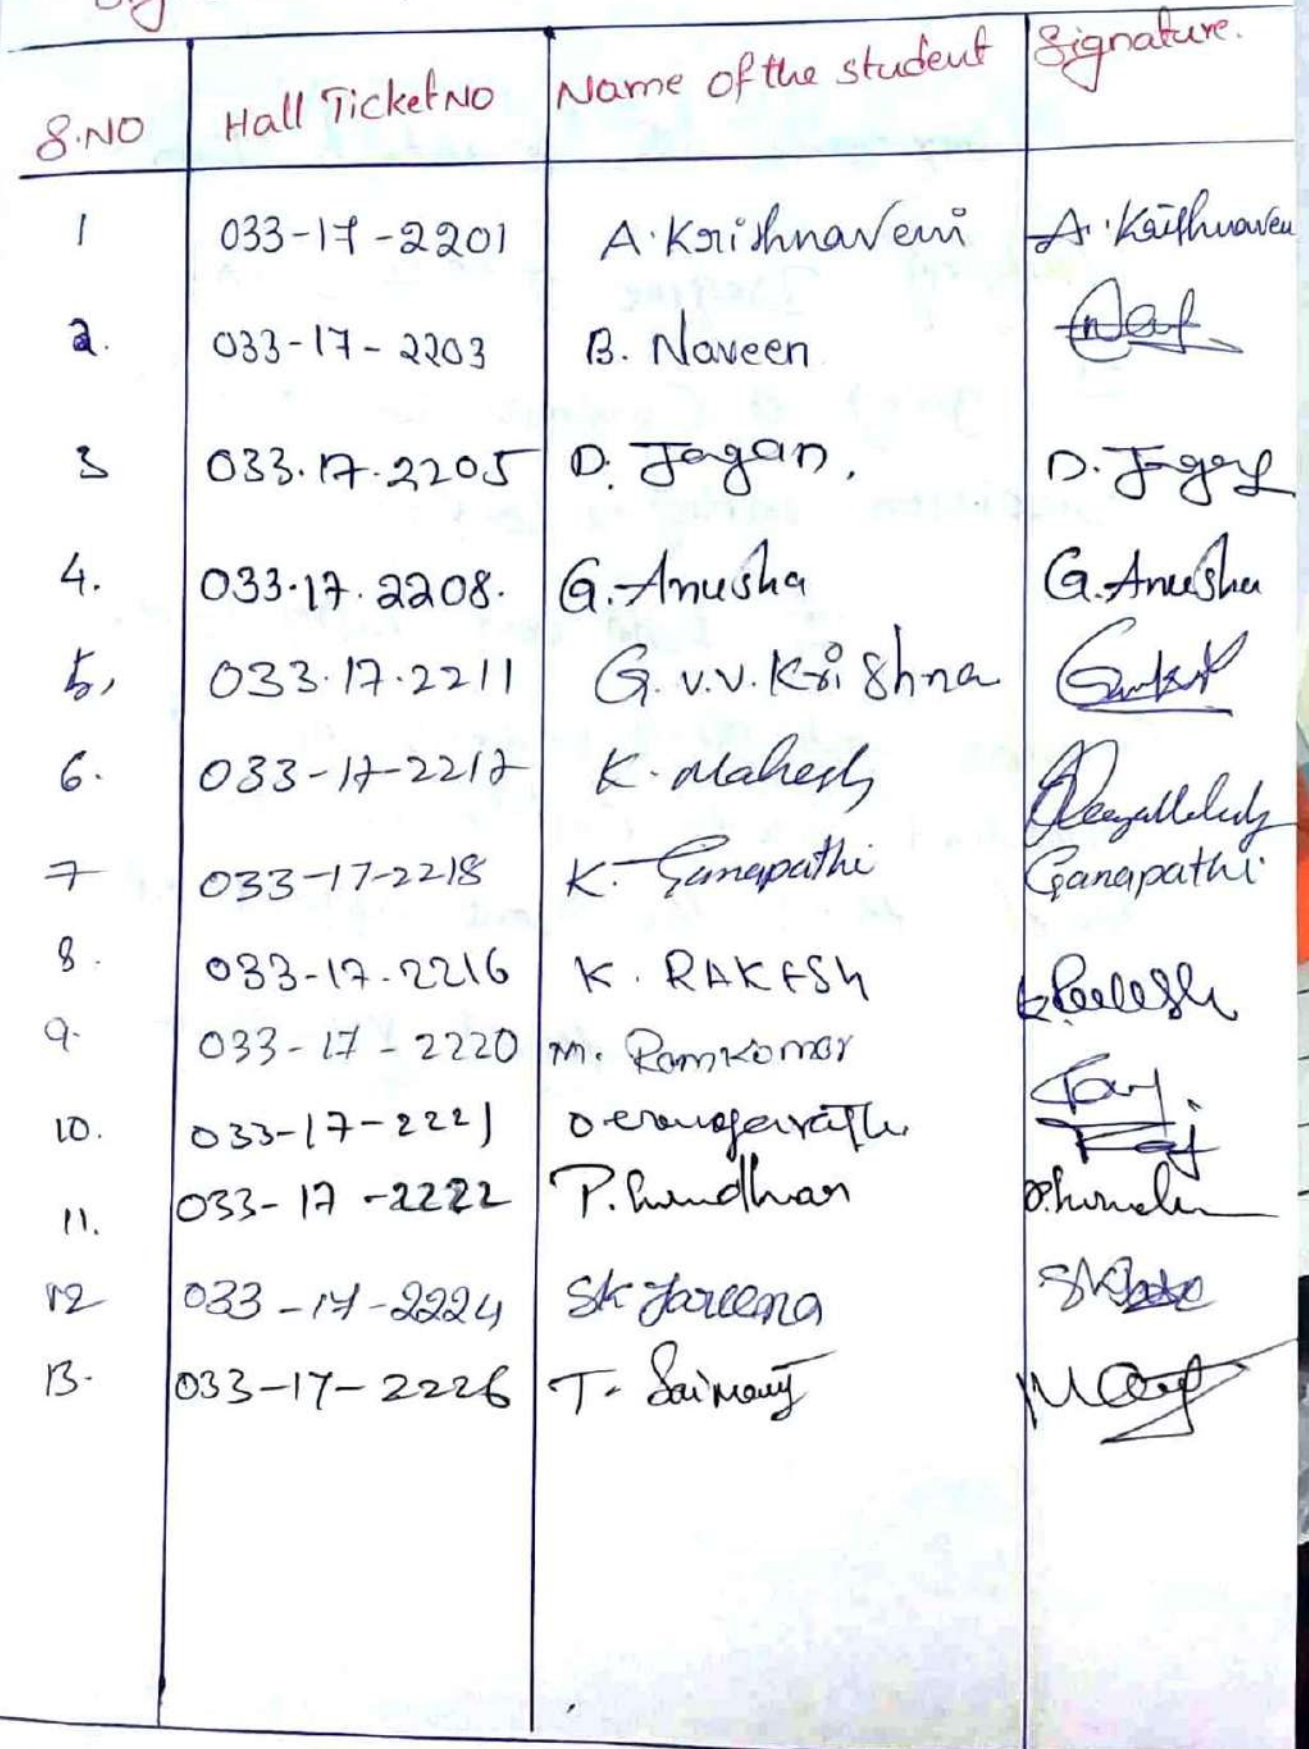 S.NO Hall Ticket NO Name of the student Signature.
1 033-17-2201 A. Krishnaveni A. Krishnaveni
2. 033-17-2203 B. Naveen
3 033.17.2205 D. Jagan. D. Jagan
4. 033.17.2208. G. Anusha G. Anusha
5, 033.17.2211 G. V.V. Krishna
6. 033-17-2217 K. Mahesh
7 033-17-2218 K. Ganapathi Ganapathi
8. 033-17.2216 K. RAKESH K. Rakesh
9. 033-17-2220 M. Ramkomar
10. 033-17-2221
11. 033-17-2222 P.
12 033-17-2224 SK Jareena SK
13. 033-17-2226 T.